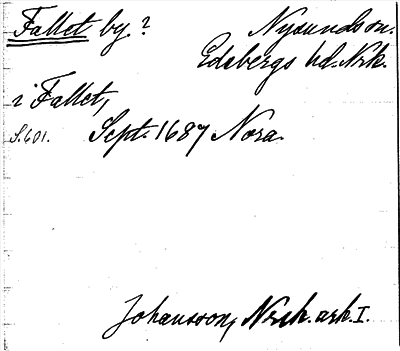 Fallet by? Nysunds sn.
Edsbergs hd. Nrk.
i Fallet,
S. 601. Sept. 1687 Nora.
Johansson, Nrk. ark. I.